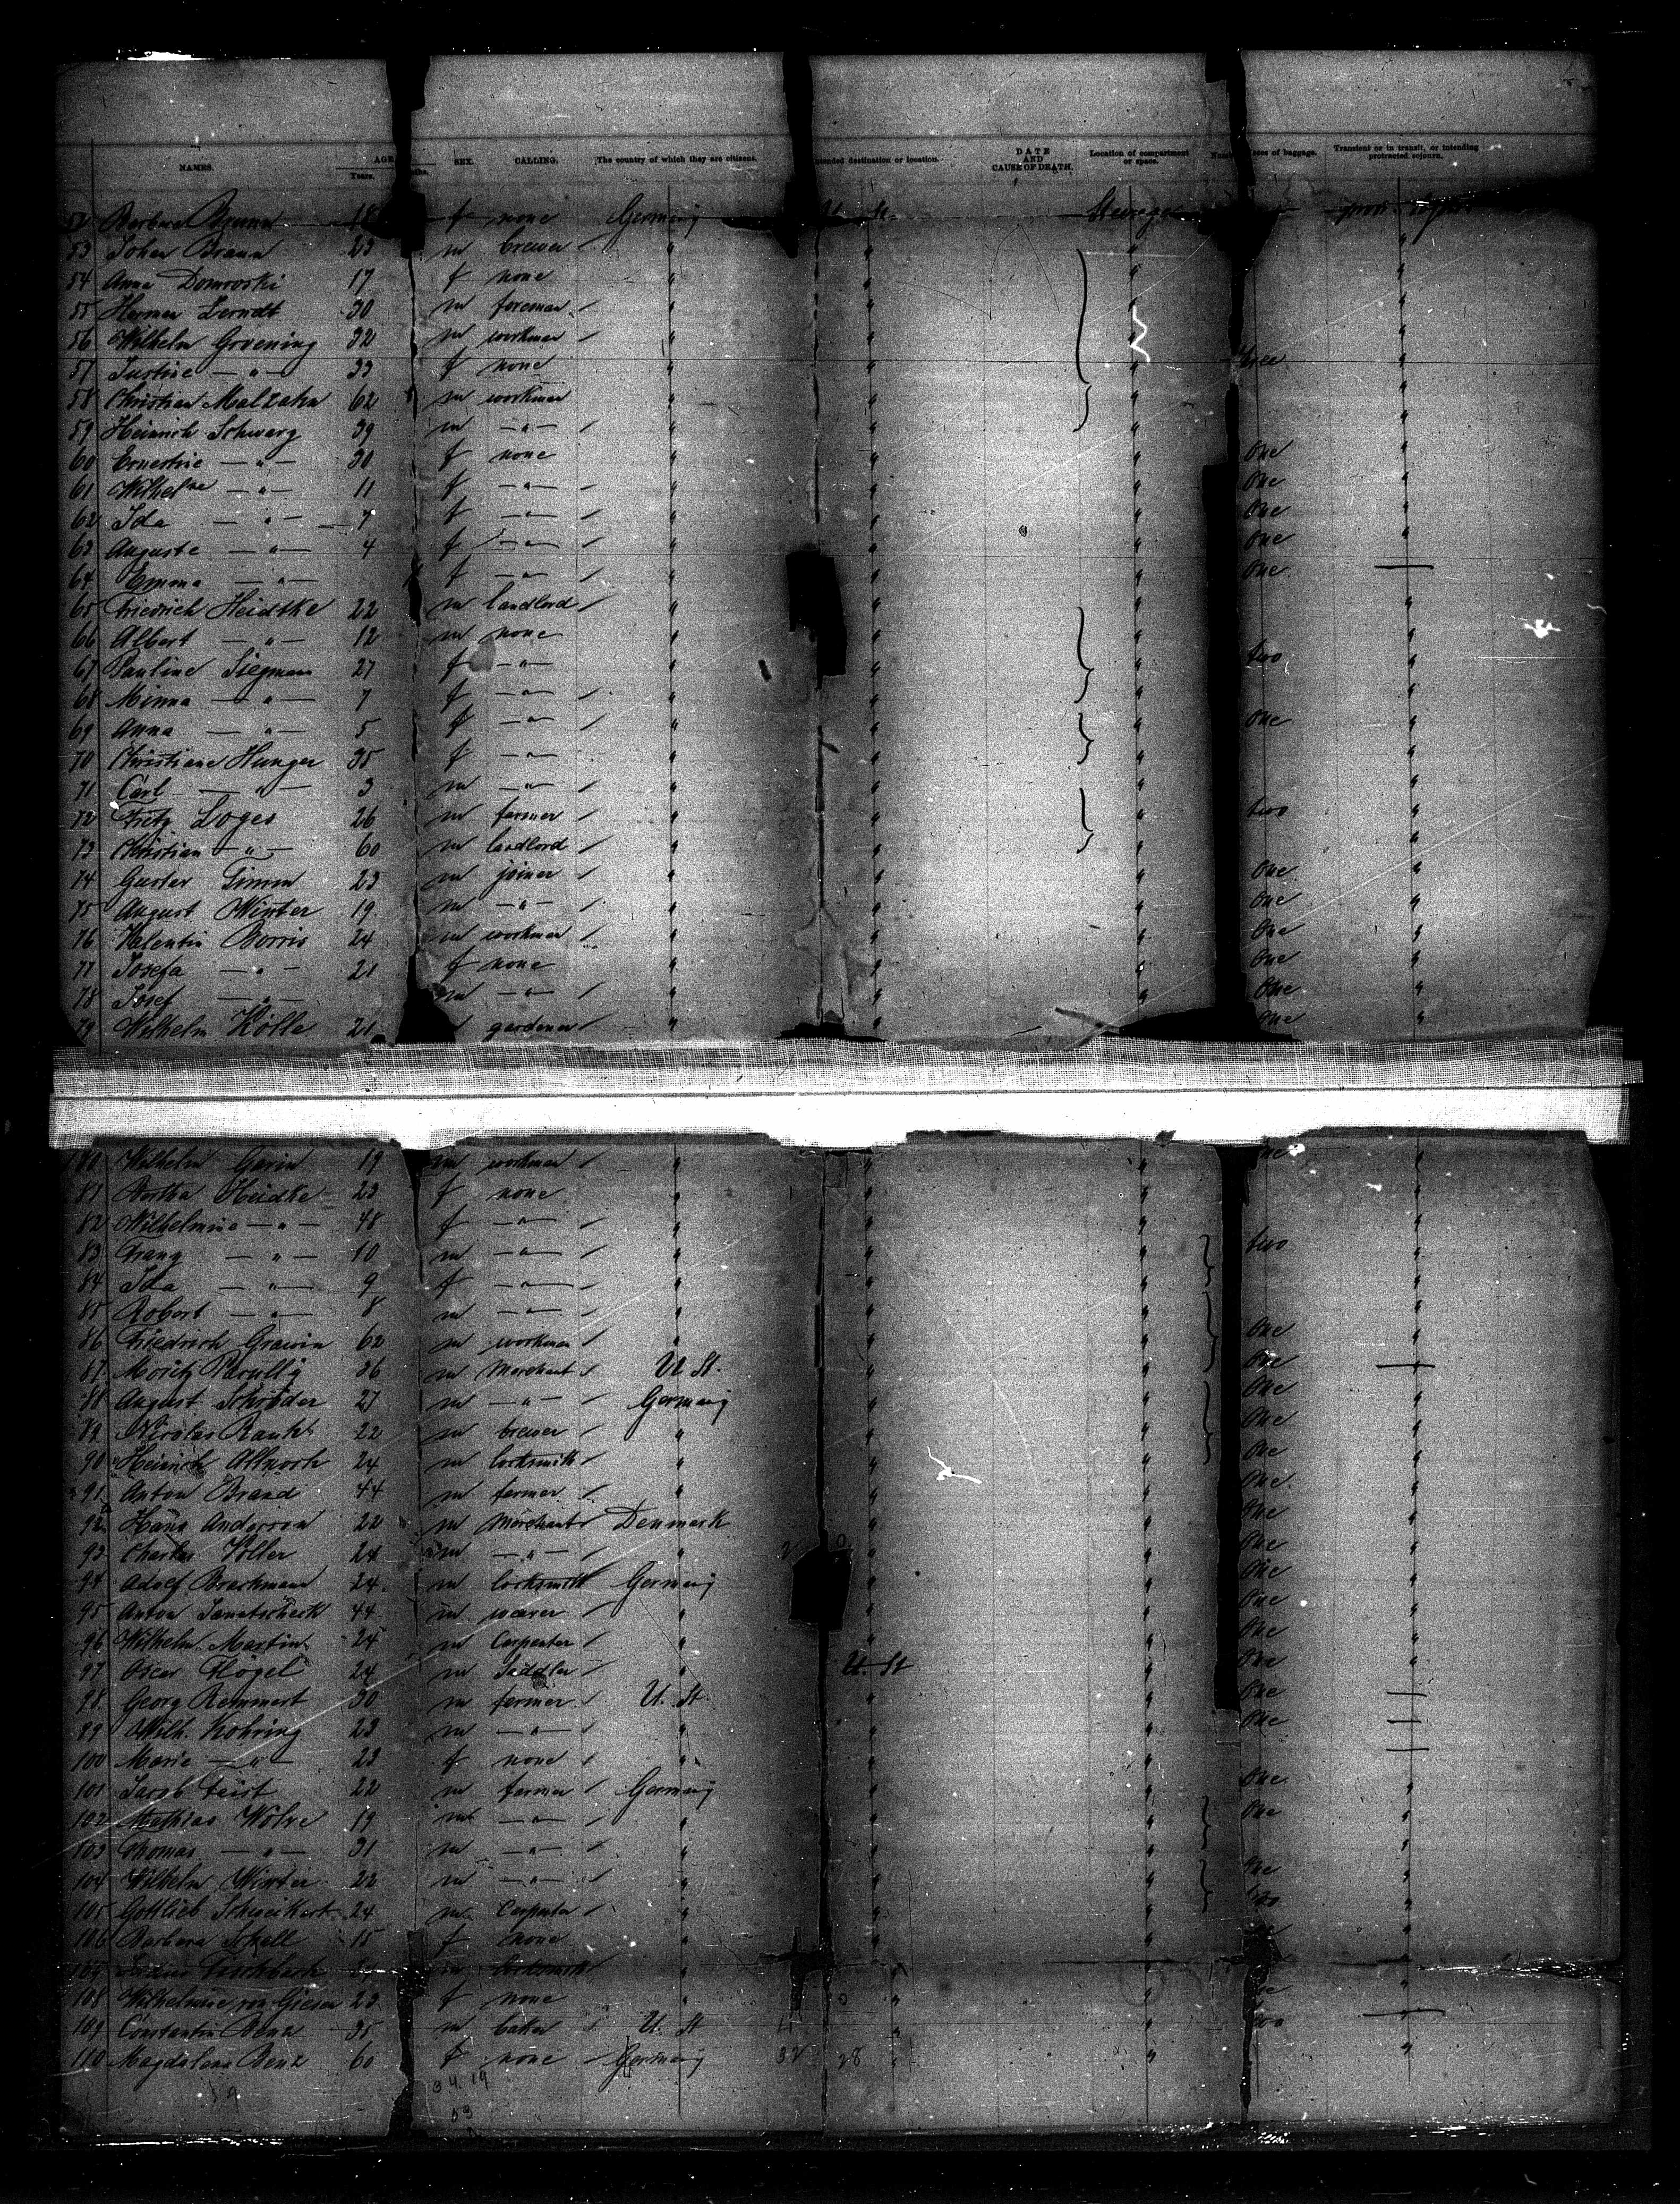 NAMES. AGE. Years. SEX. CALLING. The country of which they are citizens. destination or location. DATE AND CAUSE OF DEATH. Location of compartment or space. of baggage. Transient or in transit, or intending protracted sojourn.
52 Barbara Braun 18 f none Germany U. St. Steerage
53 Johan Braun 23 m brewer " " " "
54 Anna Domrowski 17 f none " " " "
55 Herman Berndt 30 m foreman " " " "
56 Wilhelm Groening 32 m workman " " " "
57 Justine — " — 33 f none " " " three "
58 Christian Malzahn 62 m workman " " " "
59 Heinrich Schwarz 39 m — " — " " " "
60 Ernestine — " — 30 f none " " " One "
61 Wilhelne — " — 11 f — " — " " " One "
62 Ida — " — 7 f — " — " " " One "
63 Auguste — " — 4 f — " — " " " One "
64 Emma — " — f — " — " " " One —
65 Friedrich Heidtke 22 m landlord " " " "
66 Albert — " — 12 m none " " " "
67 Pauline Siegman 27 f — " — " " " two "
68 Minna — " — 7 f — " — " " " "
69 Anna — " — 5 f — " — " " " One "
70 Christiane Hunger 35 f — " — " " " "
71 Carl — " — 3 m — " — " " " "
72 Fritz Loges 26 m farmer " " " two "
73 Christian — " — 60 m landlord " " " "
74 Gustav Timm 23 m joiner " " " One "
75 August Winter 19 m — " — " " " One "
76 Valentin Borris 24 m workman " " " One "
77 Josefa — " — 21 f none " " " One "
78 Josef — " — m — " — " " " One "
79 Wilhelm Kölle 21 gardener " " One "
80 Wilhelm Garin 19 m workman " " " One "
81 Bertha Heidke 23 f none " " " "
82 Wilhelmine — " — 48 f — " — " " " "
83 Franz — " — 10 m — " — " " " two "
84 Ida — " — 9 f — " — " " " "
85 Robert — " — 8 m — " — " " " "
86 Friedrich Grawin 62 m workman " " " One "
87 Moritz 36 m Merchant U. St. " " One —
88 August Schröder 27 m — " — Germany " " One "
89 Nicolas Rauh 22 m brewer " " " One "
90 Heinrich 24 m locksmith " " " One "
91 Anton Brand 44 m farmer " " " One "
92 Hans Anderson 22 m Merchant Denmark " " One "
93 Charles Völler 24 m — " — " " " One "
94 Adolf Brackmann 24 m locksmith Germany " " One "
95 Anton Janetscheck 44 m weaver " " " One "
96 Wilhelm Martin 24 m Carpenter " " " One "
97 Oscar Flögel 24 m Saddler " U. St " One "
98 Georg Remmert 30 m farmer U. St. " " One —
99 Wilh. Kohring 23 m — " — " " " One —
100 Marie — " — 23 f none " " " —
101 Jacob Feist 22 m farmer Germany " " One "
102 Mathias 19 m — " — " " " One "
103 Thomas — " — 31 m — " — " " " "
104 Wilhelm Winter 22 m — " — " " " One "
105 Gottlieb Schweikert 24 m Carpenter " " " two "
106 Barbara Schell 15 f none " " "
107 m locksmith " " " "
108 Wilhelmine von Giesen 23 f none " " " "
109 Constantin Benz 35 m baker U. St " " two —
110 Magdalena Benz 60 f none Germany 32 28 " " "
34 19